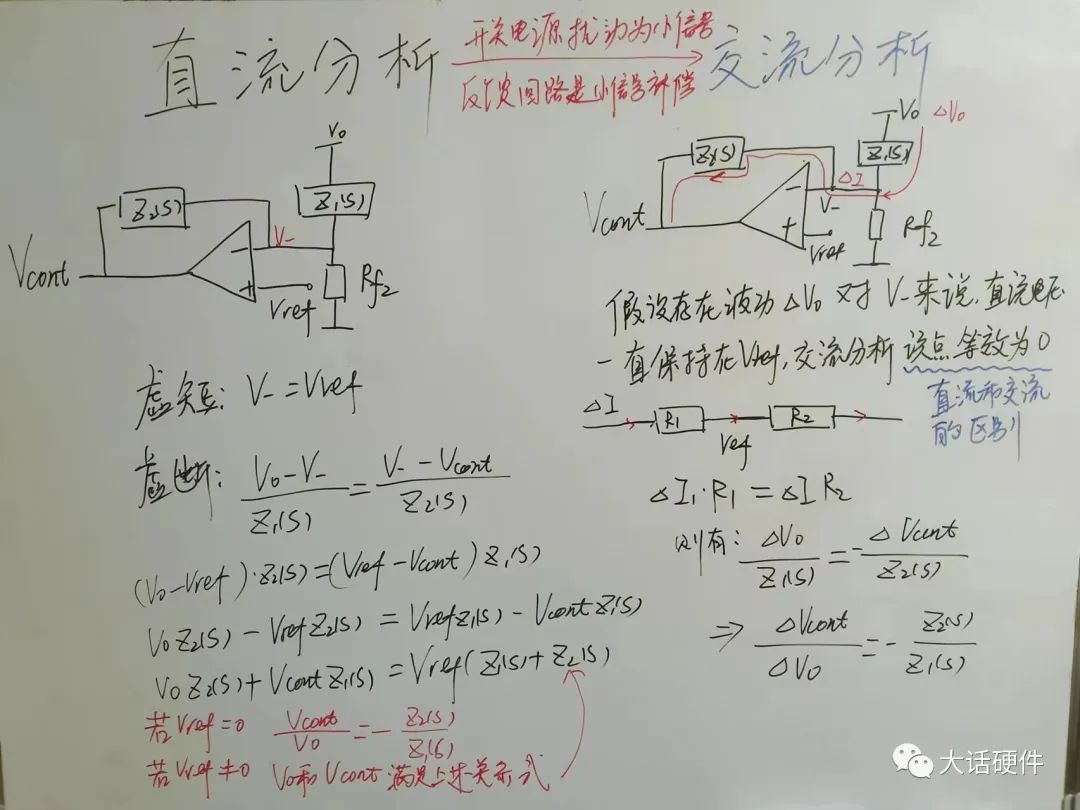 直流分析
开关电源扰动为小信号
反馈回路是小信号补偿
交流分析
Vo
Z₁(S)
Z₂(S)
V₋
Vcont
−
+
Vref
Rf₂
虚短: V₋=Vref
虚断: (Vo−V₋)/Z₁(S) = (V₋−Vcont)/Z₂(S)
(Vo−Vref)·Z₂(S)=(Vref−Vcont)Z₁(S)
VoZ₂(S)−VrefZ₂(S)=VrefZ₁(S)−VcontZ₁(S)
VoZ₂(S)+VcontZ₁(S)=Vref(Z₁(S)+Z₂(S)
若Vref=0 Vcont/Vo=−Z₂(S)/Z₁(S)
若Vref≠0 Vo和Vcont满足上述关系式
Vo ΔVo
Z₁(S)
Z₂(S)
ΔI
V₋
Vcont
−
+
Vref
Rf₂
假设存在波动ΔVo 对V₋来说,直流电压
一直保持在Vref,交流分析该点等效为0
直流和交流
的区别
ΔI R₁ R₂
Vref
ΔI₁·R₁=ΔI R₂
则有: ΔVo/Z₁(S) = −ΔVcont/Z₂(S)
⇒ ΔVcont/ΔVo = −Z₂(S)/Z₁(S)
大话硬件